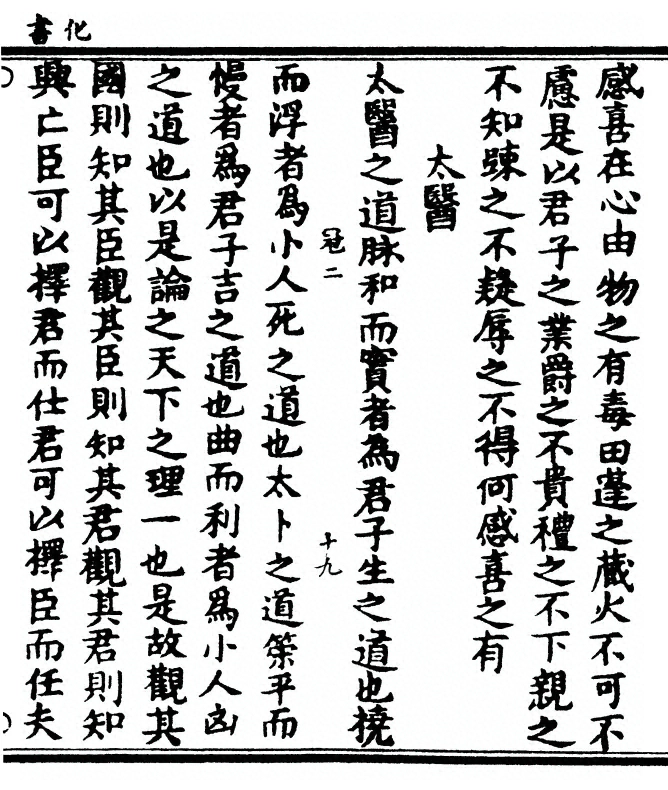 化書
感喜在心由物之有毒由蓬之藏火不可不
慮是以君子之業爵之不貴禮之不下親之
不知踈之不疑辱之不得何感喜之有
太醫
太醫之道脉和而實者為君子生之道也撓
冠二
十九
而浮者為小人死之道也太卜之道筞平而
慢者爲君子吉之道也曲而利者爲小人凶
之道也以是論之天下之理一也是故觀其
國則知其臣觀其臣則知其君觀其君則知
興亡臣可以擇君而仕君可以擇臣而任夫